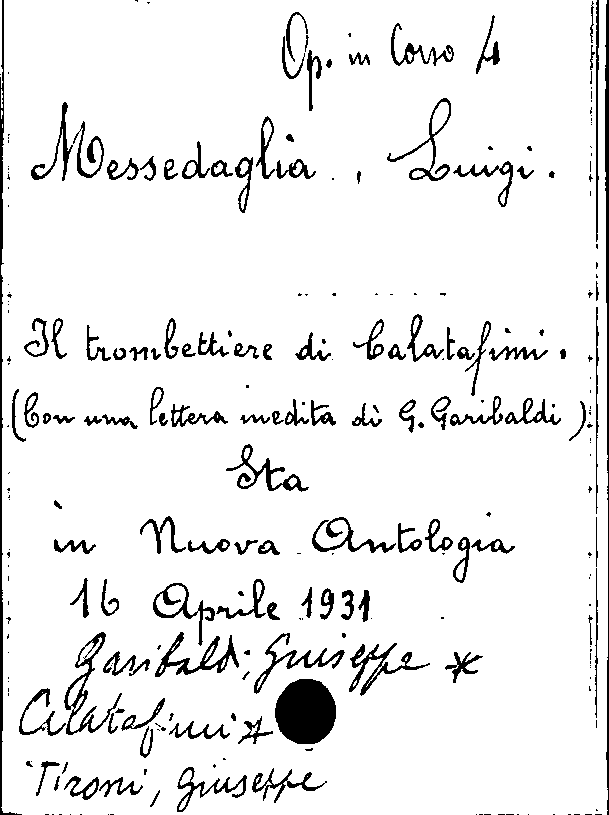 Op. in Corso 4
Messedaglia, Luigi.
Il trombettiere di Calatafimi.
(Con una lettera inedita di G. Garibaldi)
Sta
in Nuova Antologia
16 Aprile 1931
Garibaldi, Giuseppe *
Calatafimi *
Tironi, Giuseppe